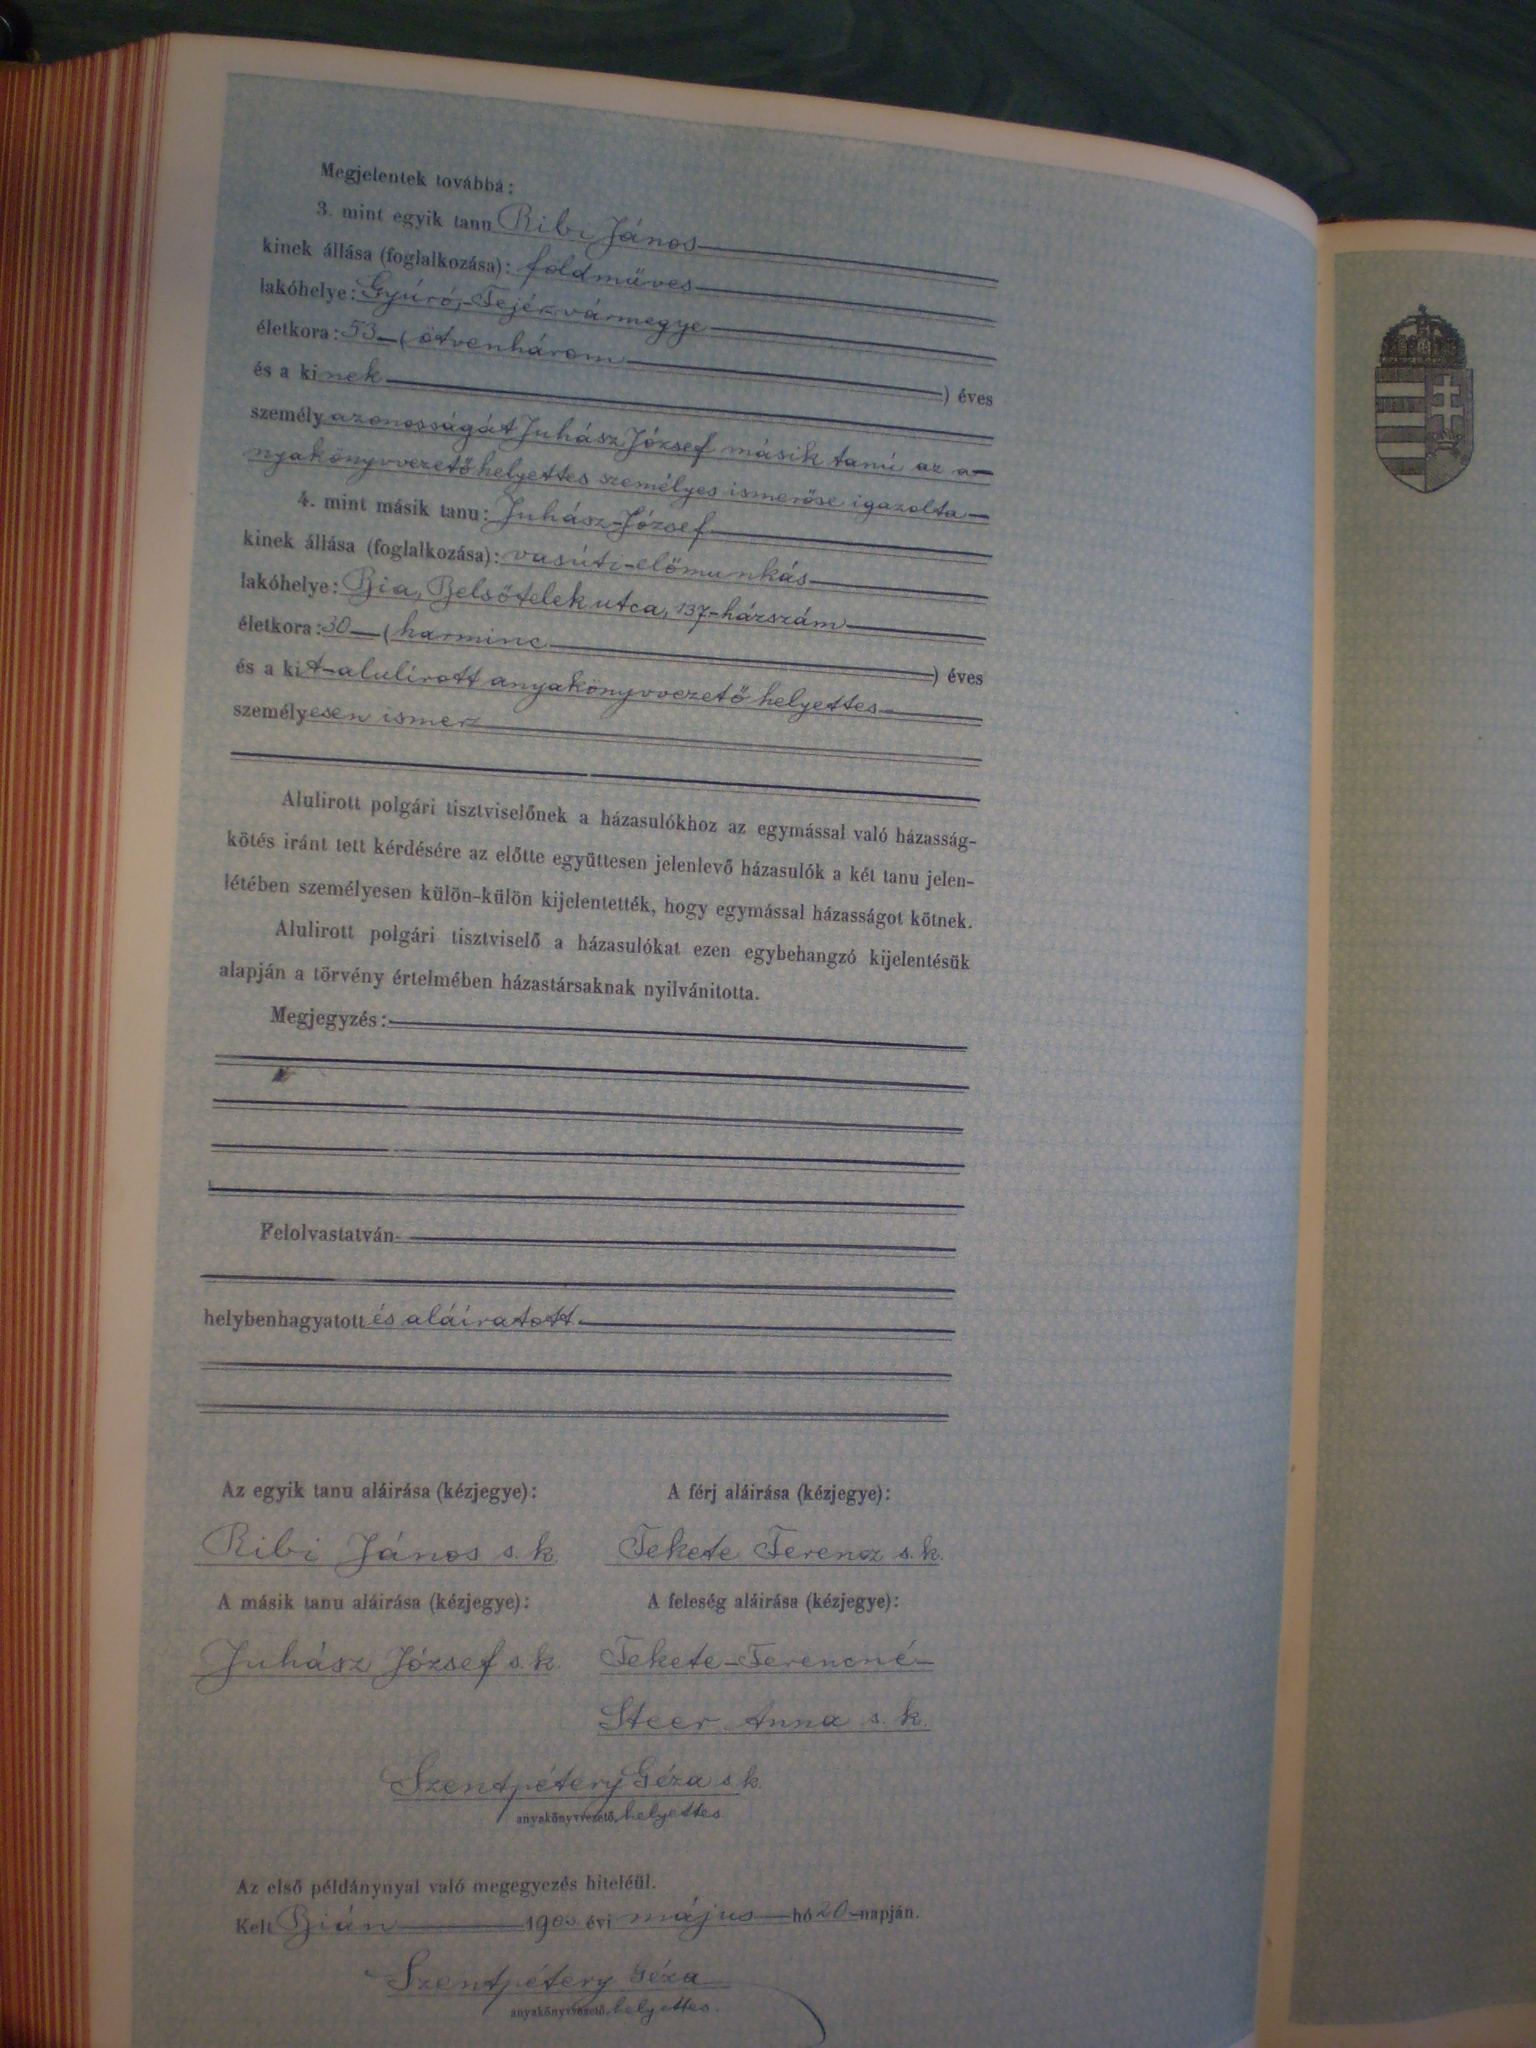 Megjelentek továbbá:
3. mint egyik tanu Ribi János
kinek állása (foglalkozása): földmüves
lakóhelye: Gyúró, Fejérvármegye
életkora: 53 (ötvenhárom ) éves
és a kinek
személyazonosságát Juhász József másik tanú az a-
nyakönyvvezető helyettes személyes ismerőse igazolta
4. mint másik tanu: Juhász József
kinek állása (foglalkozása): vasúti-előmunkás
lakóhelye: Bia, Belsőtelek utca, 137-házszám
életkora: 30 (harminc ) éves
és a kit alulirott anyakönyvvezető helyettes
személyesen ismer
Alulirott polgári tisztviselőnek a házasulókhoz az egymással való házasság-
kötés iránt tett kérdésére az előtte együttesen jelenlevő házasulók a két tanu jelen-
létében személyesen külön-külön kijelentették, hogy egymással házasságot kötnek.
Alulirott polgári tisztviselő a házasulókat ezen egybehangzó kijelentésük
alapján a törvény értelmében házastársaknak nyilvánitotta.
Megjegyzés:
Felolvastatván
helybenhagyatott és aláiratott.
Az egyik tanu aláirása (kézjegye): A férj aláirása (kézjegye):
Ribi János s. k. Fekete Ferencz s. k.
A másik tanu aláirása (kézjegye): A feleség aláirása (kézjegye):
Juhász József s. k. Fekete-Ferencné-
Steer Anna s. k.
Szentpétery Géza s k.
anyakönyvvezető. helyettes
Az első példánynyal való megegyezés hiteléül.
Kelt Bián 190 évi május hó 20 napján.
Szentpétery Géza
anyakönyvvezető. helyettes.